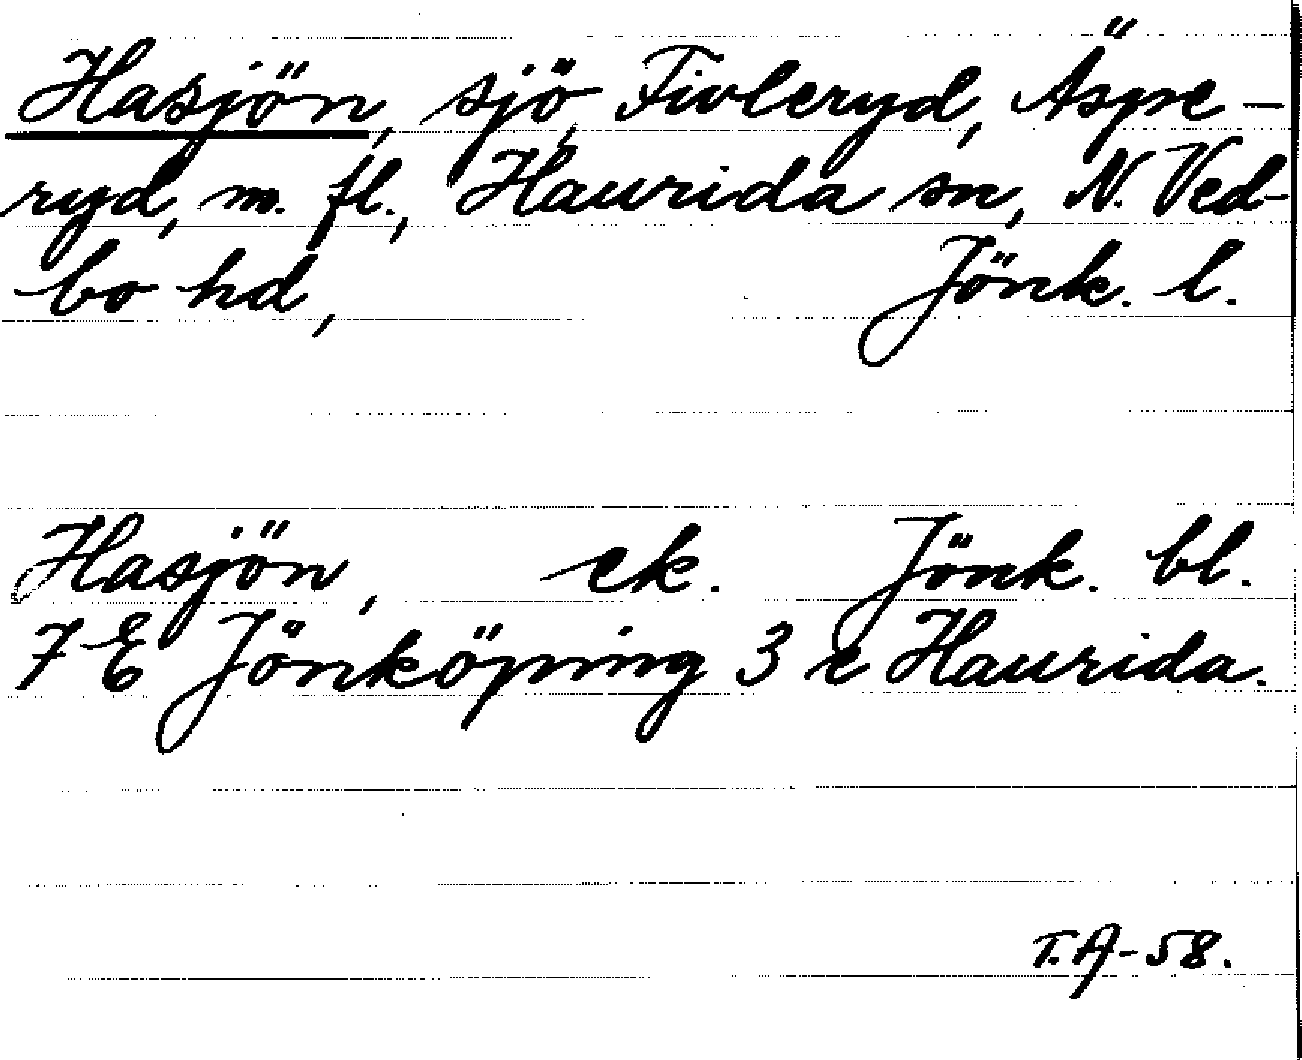 Hasjön, sjö, Fivleryd, Äspe-
ryd, m. fl., Haurida sn, N. Ved-
bo hd, Jönk. l.
Hasjön, ek. Jönk. bl.
7 E Jönköping 3 e Haurida.
T.A-58.